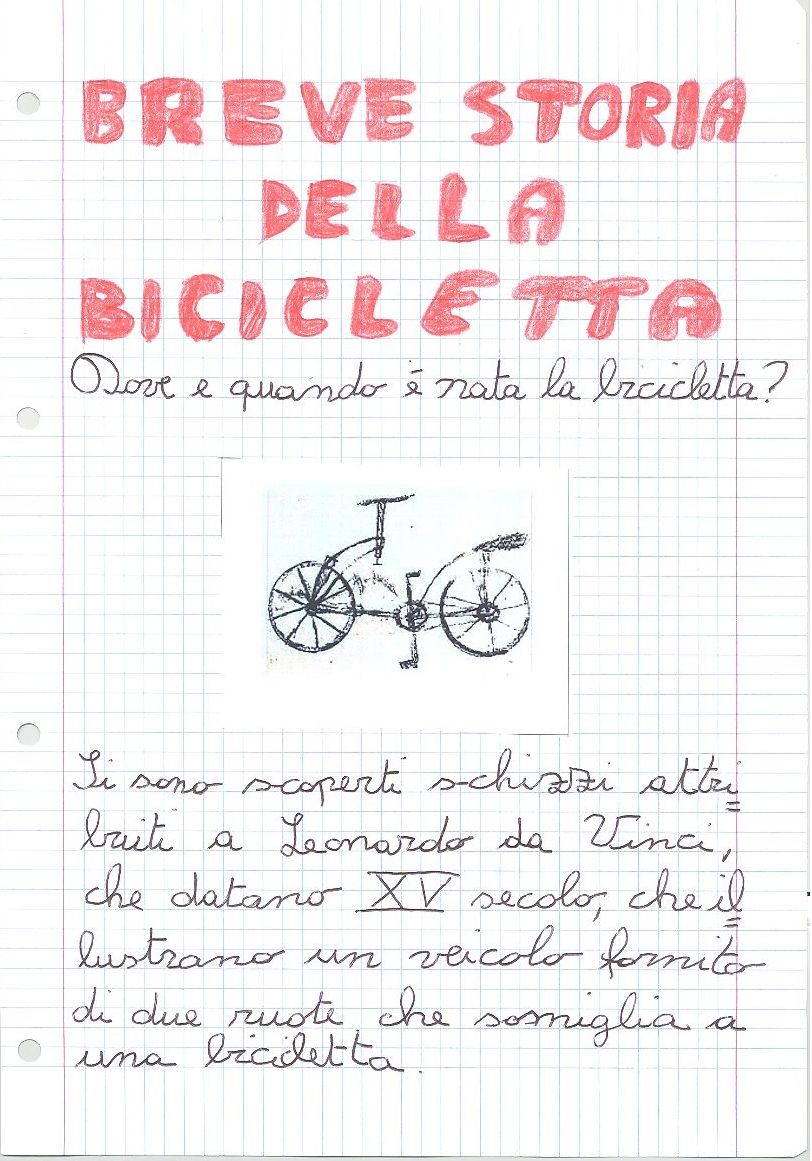 BREVE STORIA
DELLA
BICICLETTA
Dove e quando é nata la bicicletta?
Si sono scoperti schizzi attri=
buiti a Leonardo da Vinci,
che datano XV secolo, che il=
lustrano un veicolo fornito
di due ruote che somiglia a
una bicicletta.